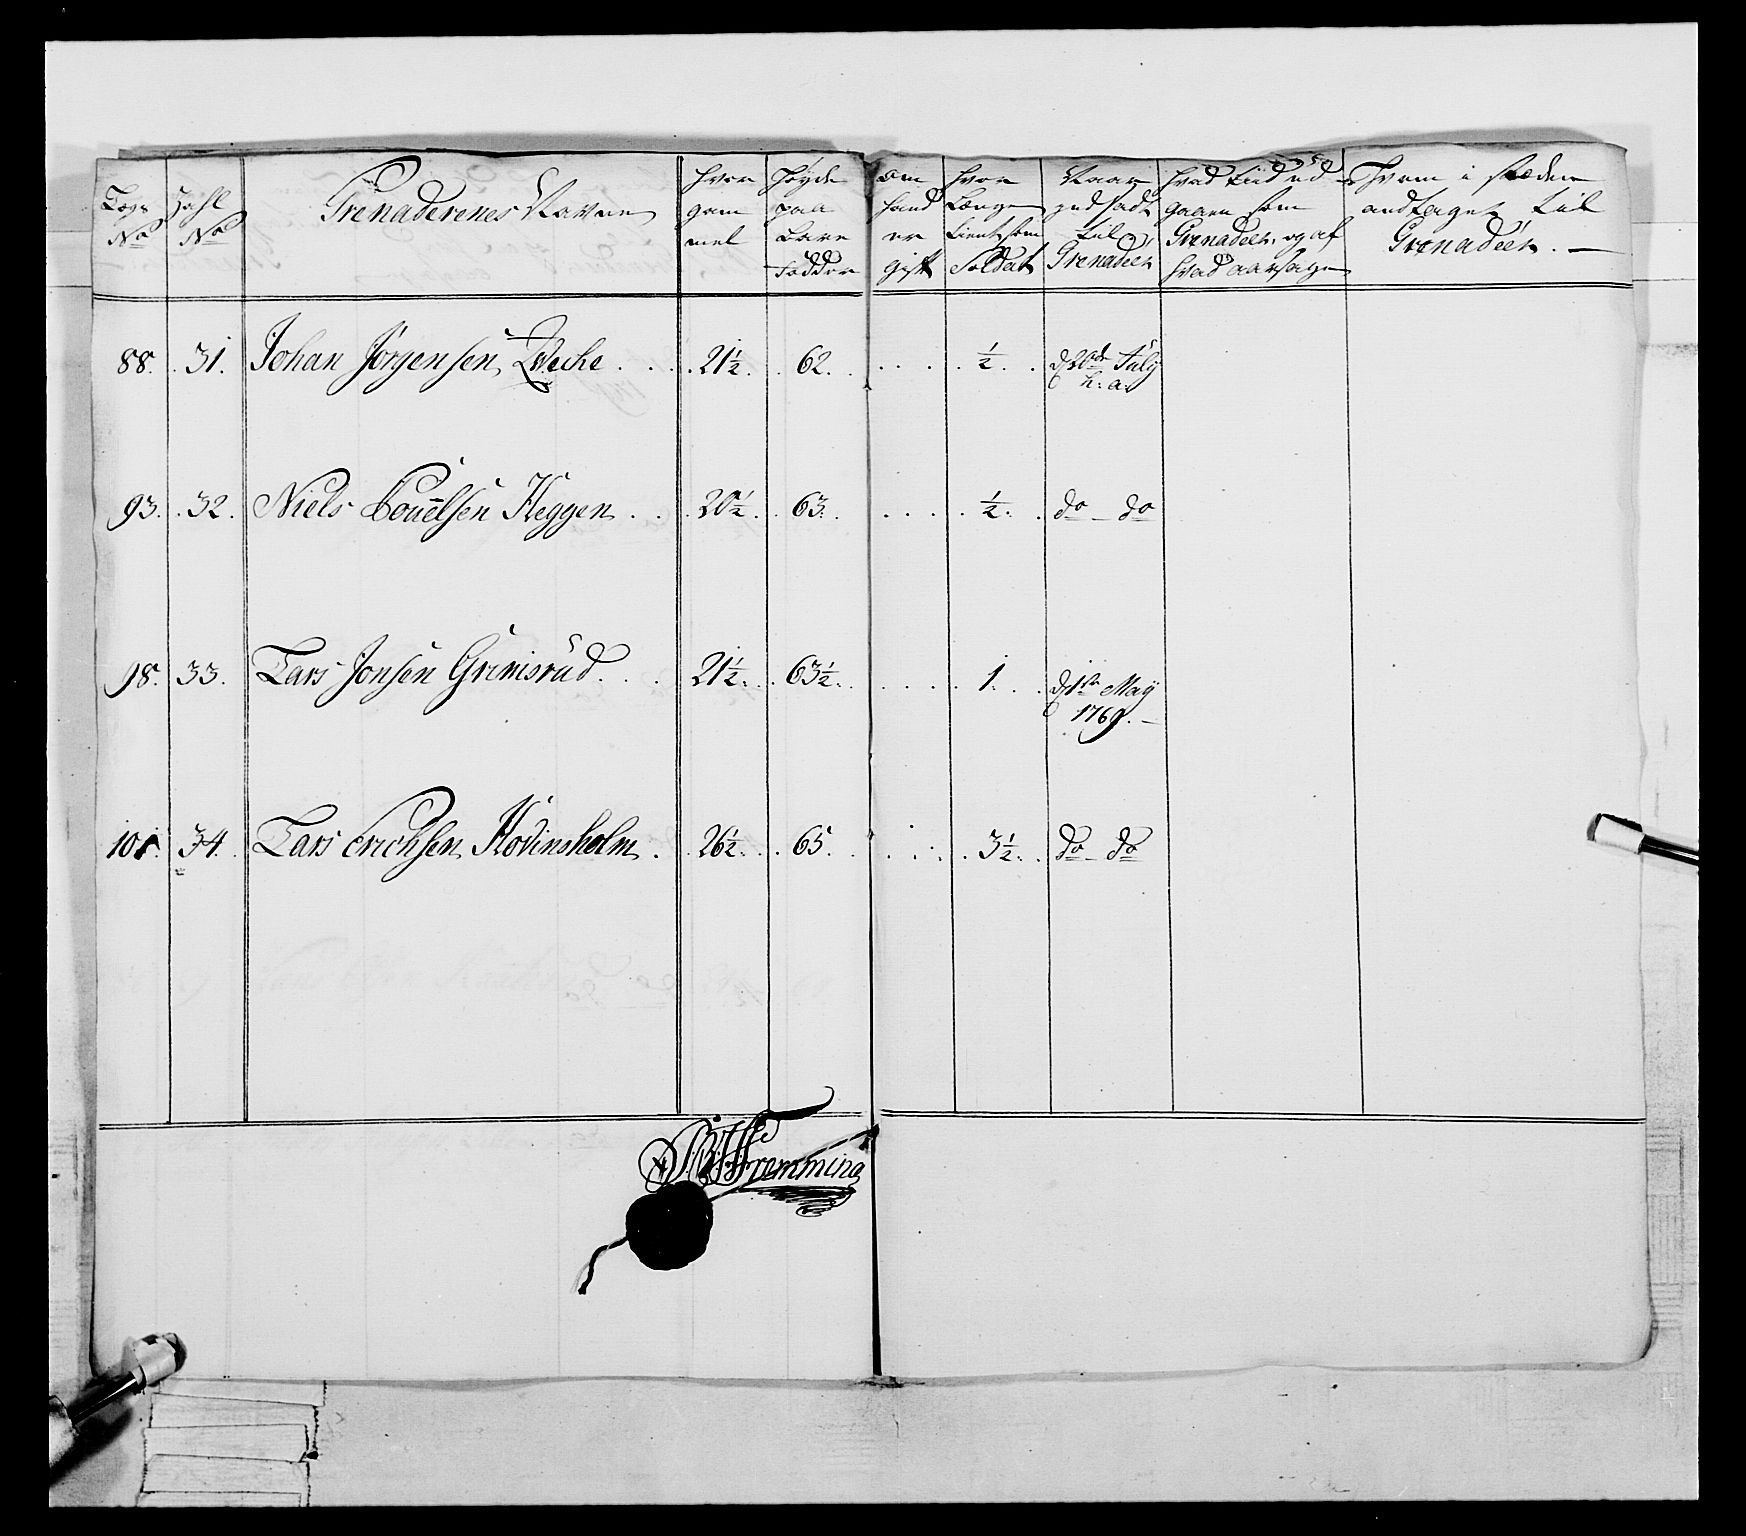 Lægs No
Zahl No
Grenaderenes Navne
hvor gam mel
Høyde paa Bare Fødder
om hand er gift
hvor Længe tient som Soldat
Naar jndsadt til Grenadeer
hvad tiid ud gaaen som Grenadeer, og af hvad aarsage
Hvem i stæden andtaget til Grenadeer. —
88. 31. Johan Jørgensen Weche . . . 21½. . 62. . . . . . ½. . d 20de July
h: a:
93. 32. Niels Pouëlsen Heggen . . . 20½. . 63. . . . . . ½. . do — do
98. 33. Lars Jonsen Grimsrud. . . 21½. . 63½. . . . . . 1. . . d 1ste May
1769. —
101. 34. Lars Erichsen Hovinsholm . . 26½. . 65. . . . . . 3½. . do — do
Fremming